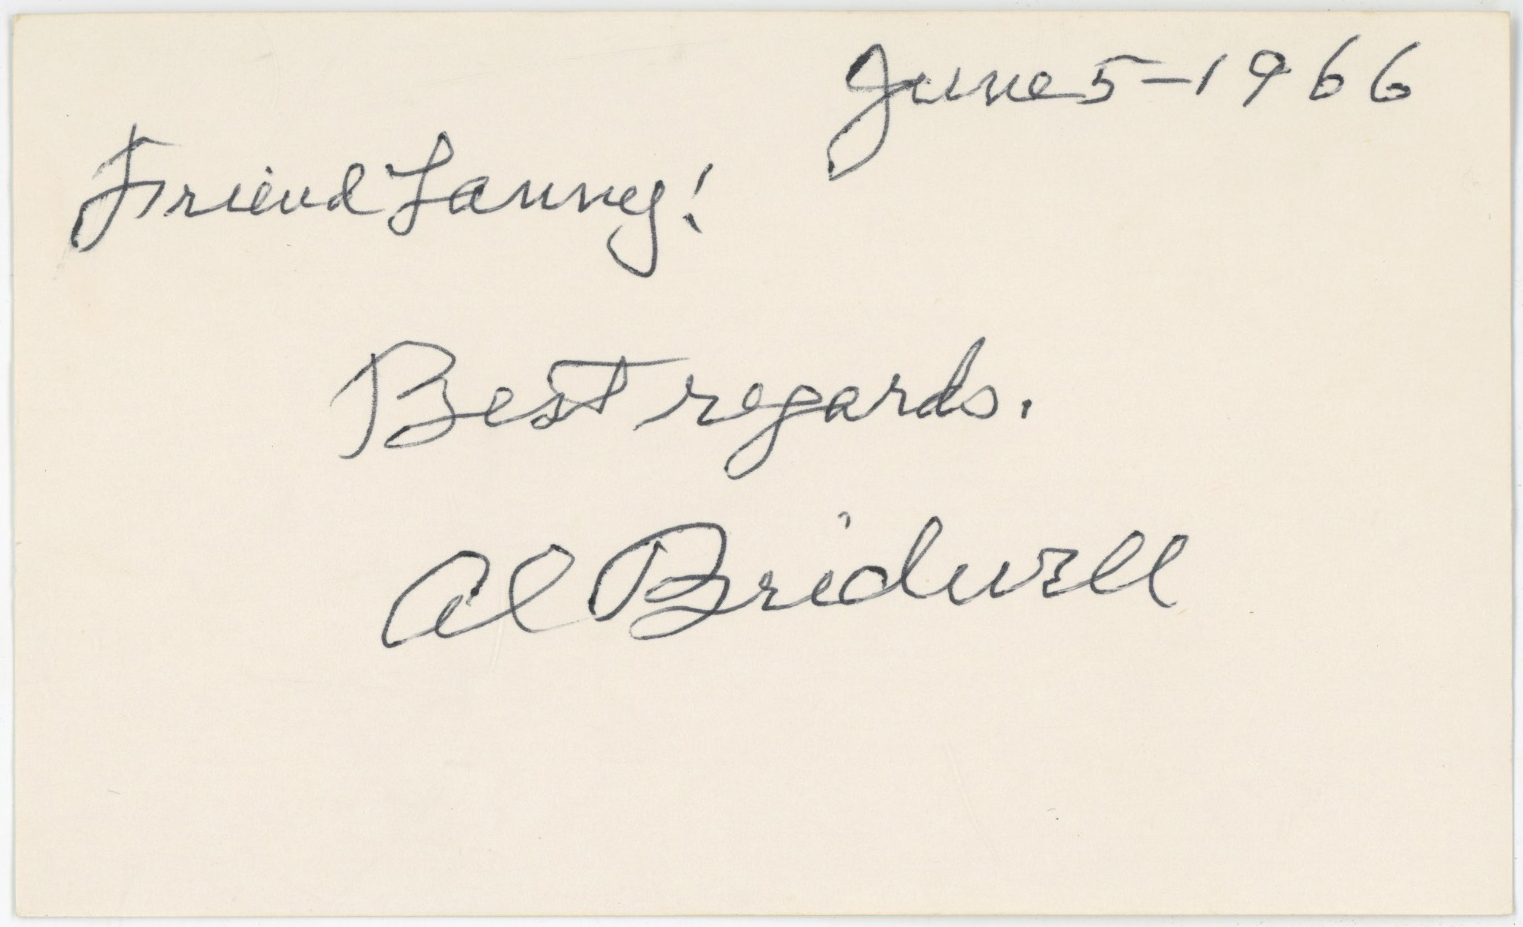 June 5-1966
Friend Lanny!
Best regards.
Al Bridwell